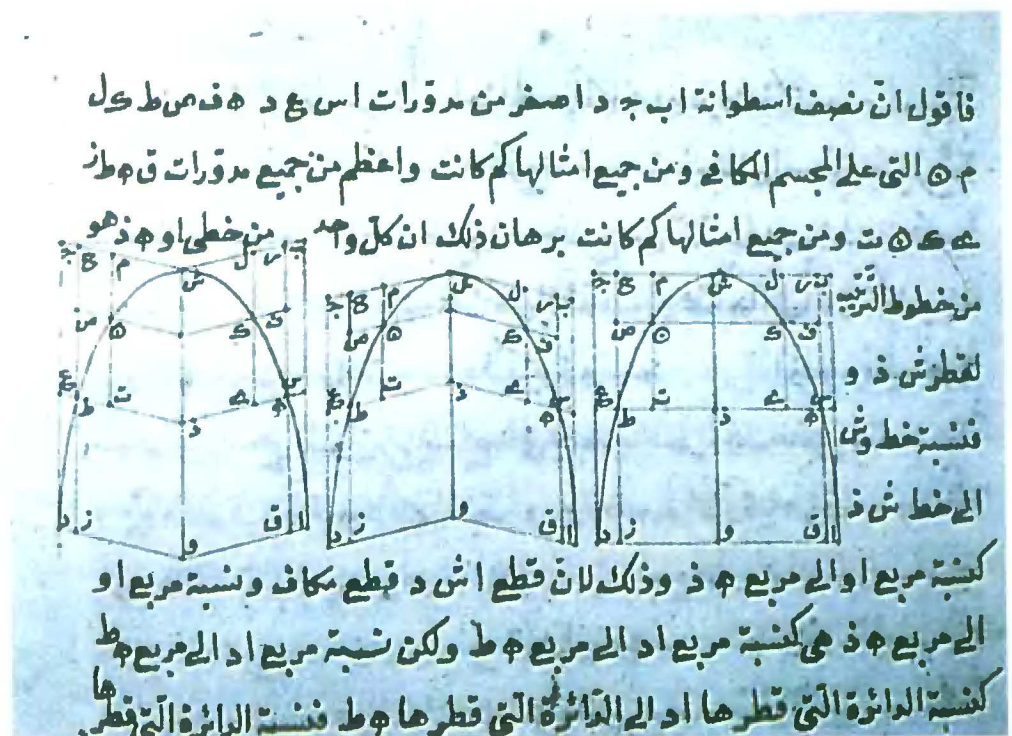 فاقول انّ نصف اسطوانة اب جـ د اصغر من مدوّرات اس ع د ه ف ص ط ك ل
م ن التى على المجسم المكافى ومن جميع امثالها كم كانت واعظم من جميع مدوّرات ق ه ط ز
ے ك ن ت ومن جميع امثالها كم كانت برهان ذلك ان كلّ واحد من خطى او ه ذ هو
من خطوط الترتيب
لقطر ش ذ و
فنسبة خط وش
الى خط ش ذ
كنسبة مربع او الى مربع ه ذ وذلك لانّ قطع اش د قطع مكاف ونسبة مربع او
الى مربع ه ذ هى كنسبة مربع اد الى مربع ه ط ولكن نسبة مربع اد الى مربع ه ط
كنسبة الدائرة الّتى قطرها اد الى الدّائرة الّتى قطرها ه ط فنسبة الدائرة الّتى قطرها